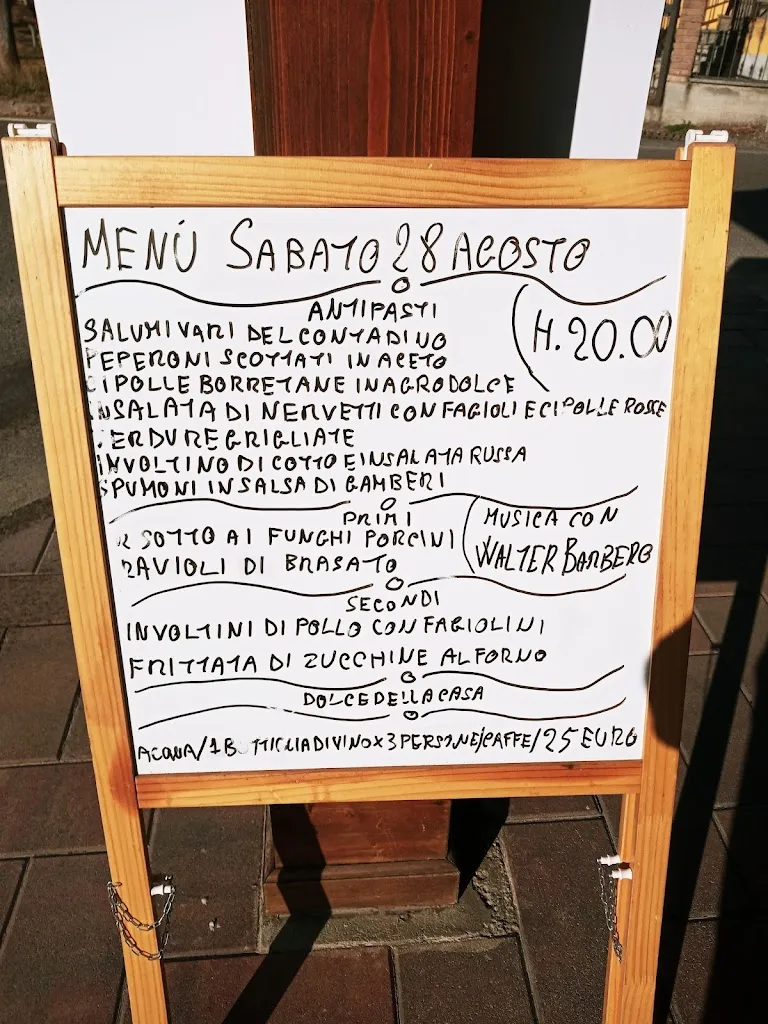 MENÙ SABATO 28 AGOSTO
ANTIPASTI
H. 20.00
SALUMI VARI DEL CONTADINO
PEPERONI SCOTTATI IN ACETO
CIPOLLE BORRETANE IN AGRODOLCE
INSALATA DI NERVETTI CON FAGIOLI E CIPOLLE ROSSE
VERDURE GRIGLIATE
INVOLTINO DI COTTO E INSALATA RUSSA
SPUMONI IN SALSA DI GAMBERI
PRIMI
MUSICA CON
WALTER BARBERO
RISOTTO AI FUNGHI PORCINI
RAVIOLI DI BRASATO
SECONDI
INVOLTINI DI POLLO CON FAGIOLINI
FRITTATA DI ZUCCHINE AL FORNO
DOLCE DELLA CASA
ACQUA/1 BOTTIGLIA DI VINO X 3 PERSONE/CAFFE/25 EURO